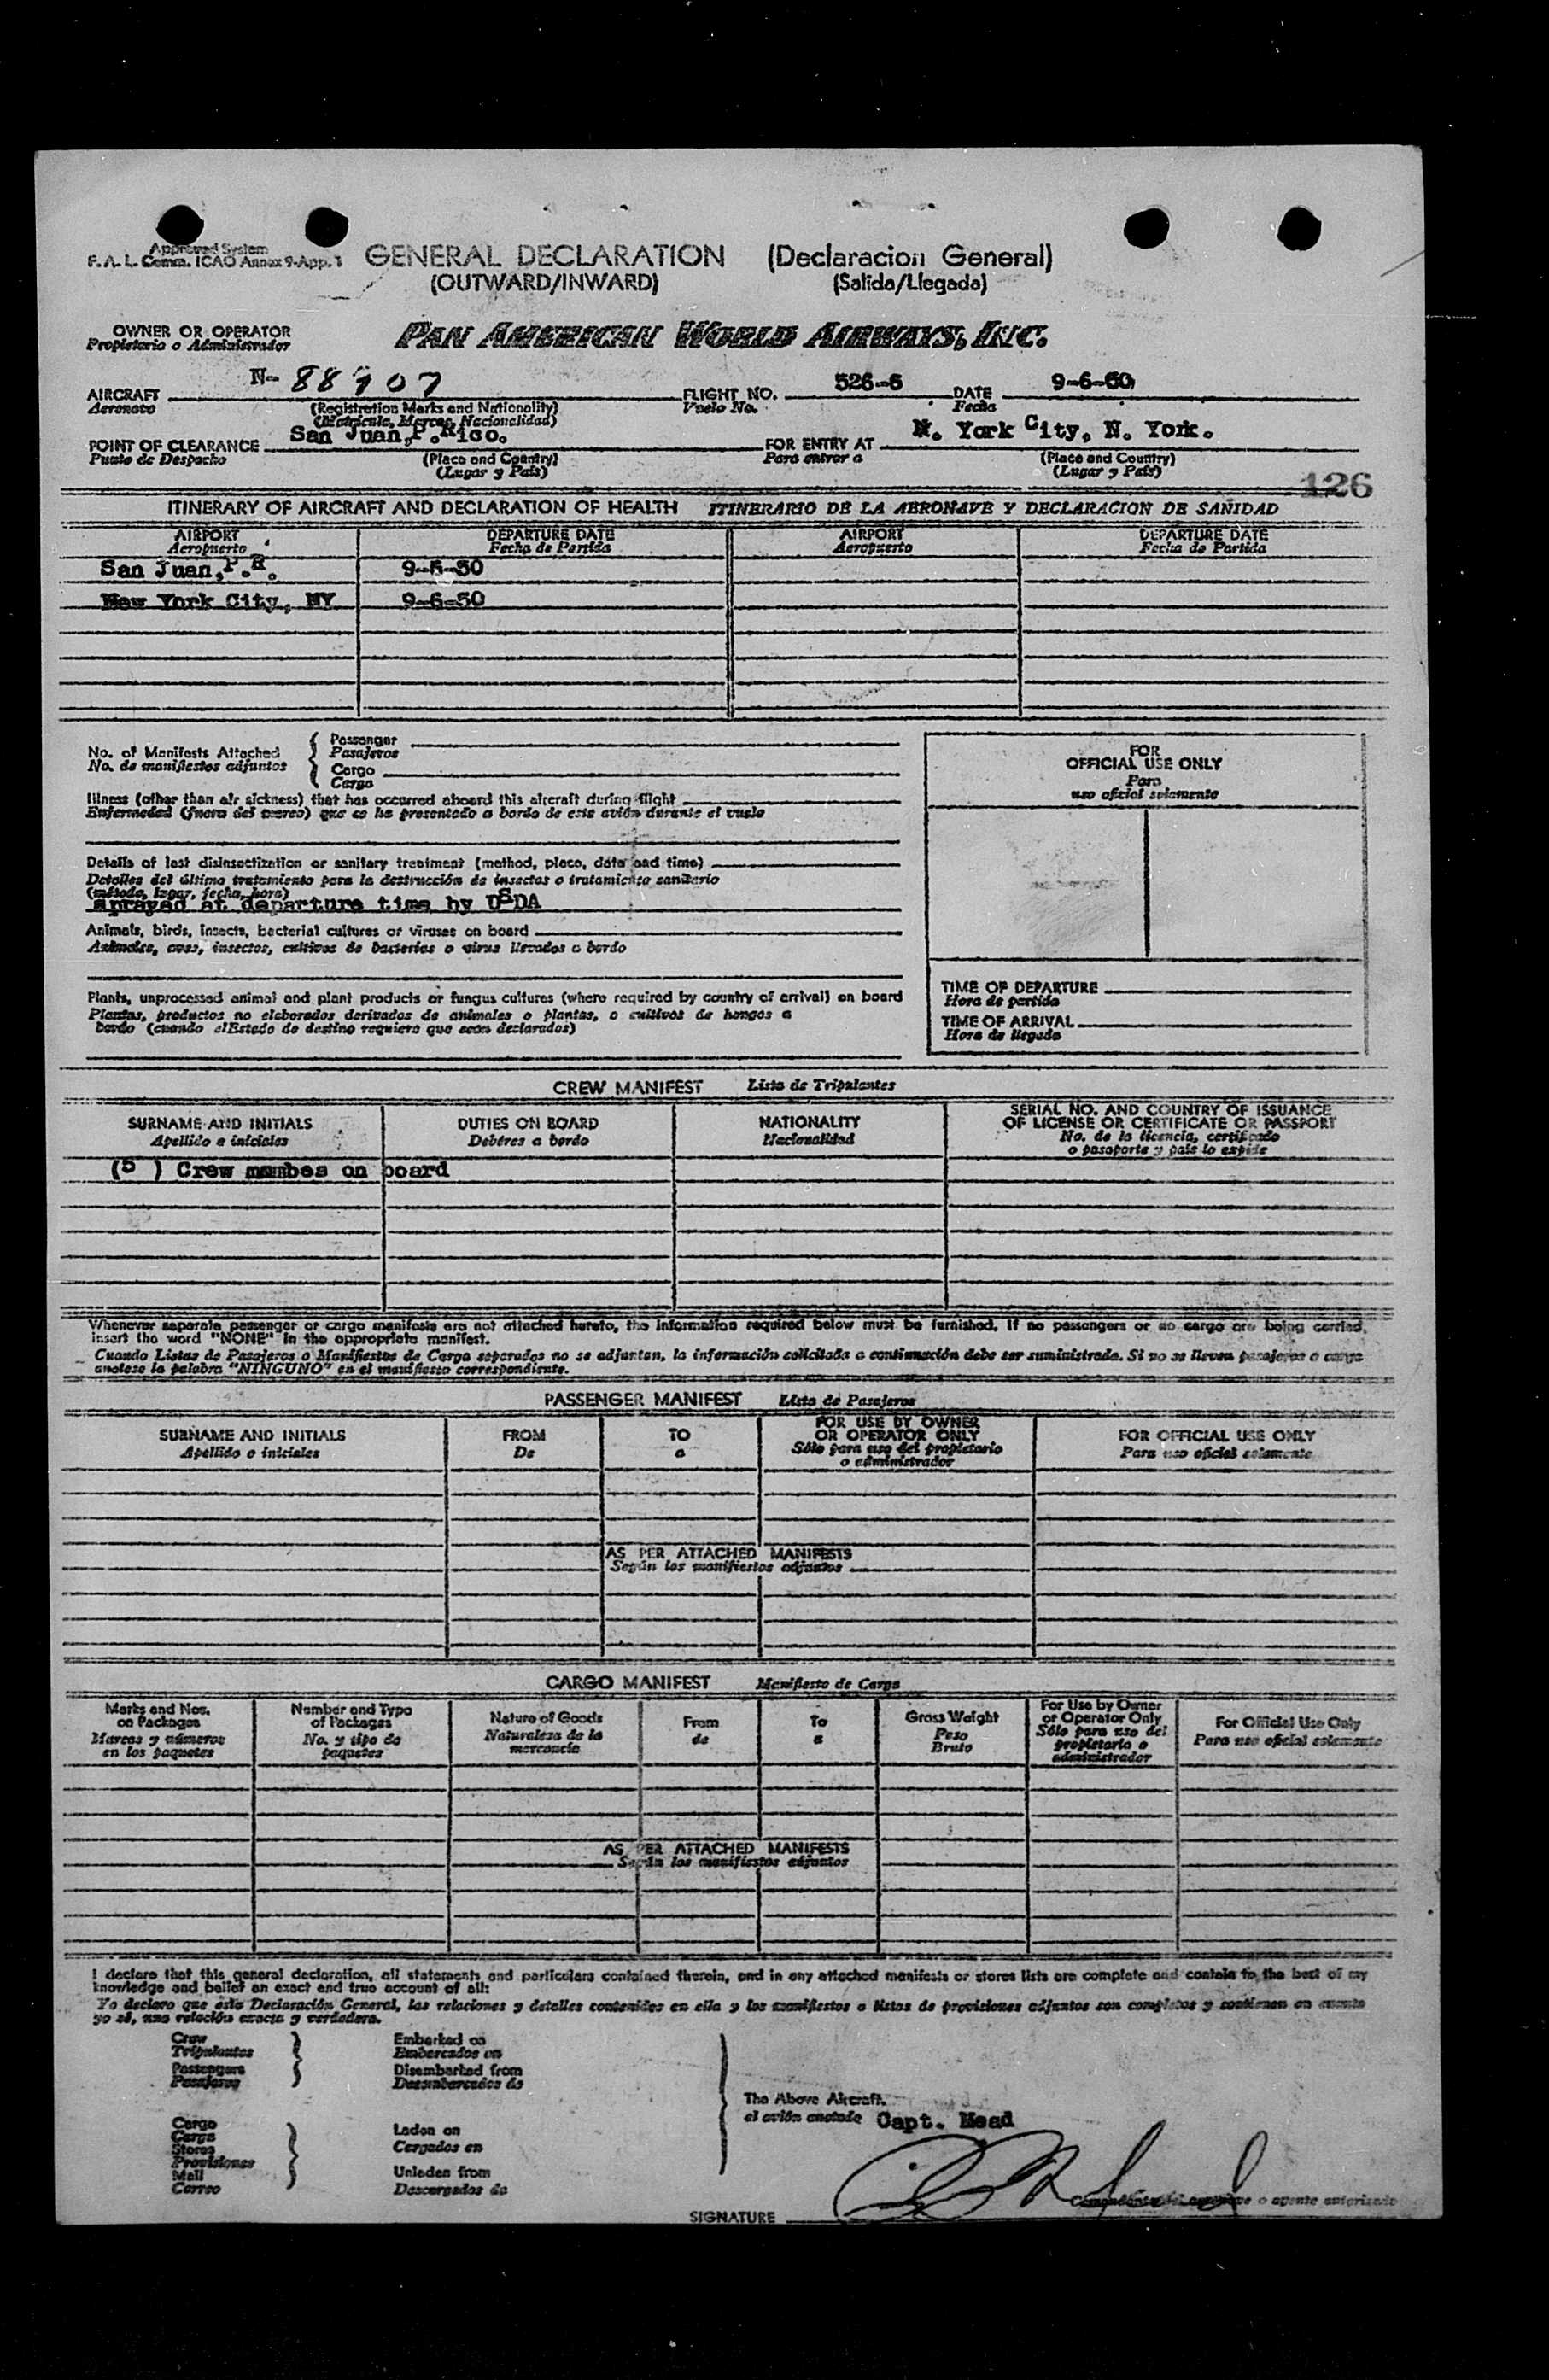 Approved System
F. A. L. Comm. ICAO Annex 9-App. 1
GENERAL DECLARATION (Declaracion General)
(OUTWARD/INWARD) (Salida/Llegada)
OWNER OR OPERATOR
Propietario o Administrador
PAN AMERICAN WORLD AIRWAYS, INC.
AIRCRAFT N- 88907 FLIGHT NO. 526-6 DATE 9-6-50
Aeronave (Registration Marks and Nationality) Vuelo No. Fecha
(Matricula, Marcas, Nacionalidad)
POINT OF CLEARANCE San Juan,P.Rico. FOR ENTRY AT N. York City, N. York.
Punto de Despacho (Place and Country) Para entrar a (Place and Country)
(Lugar y País) (Lugar y País)
126
ITINERARY OF AIRCRAFT AND DECLARATION OF HEALTH ITINERARIO DE LA AERONAVE Y DECLARACION DE SANIDAD
AIRPORT DEPARTURE DATE AIRPORT DEPARTURE DATE
Aeropuerto Fecha de Partida Aeropuerto Fecha de Partida
San Juan,P.R. 9-5-50
New York City, NY 9-6-50
No. of Manifests Attached
No. de manifiestos adjuntos
Passenger
Pasajeros
Cargo
Carga
FOR
OFFICIAL USE ONLY
Para
uso oficial solamente
Illness (other than air sickness) that has occurred aboard this aircraft during flight
Enfermedad (fuera del mareo) que se ha presentado a bordo de este avión durante el vuelo
Details of last disinsectization or sanitary treatment (method, place, date and time)
Detalles del último tratamiento para la destrucción de insectos o tratamiento sanitario
(método, lugar, fecha, hora)
sprayed at departure time by USDA
Animals, birds, insects, bacterial cultures or viruses on board
Animales, aves, insectos, cultivos de bacterias o virus llevados a bordo
Plants, unprocessed animal and plant products or fungus cultures (where required by country of arrival) on board
Plantas, productos no elaborados derivados de animales o plantas, o cultivos de hongos a
bordo (cuando elEstado de destino requiera que sean declarados)
TIME OF DEPARTURE
Hora de partida
TIME OF ARRIVAL
Hora de llegada
CREW MANIFEST Lista de Tripulantes
SURNAME AND INITIALS DUTIES ON BOARD NATIONALITY SERIAL NO. AND COUNTRY OF ISSUANCE
OF LICENSE OR CERTIFICATE OR PASSPORT
Apellido e iniciales Debéres a bordo Nacionalidad No. de la licencia, certificado
o pasaporte y país lo expide
(5 ) Crew membes on board
Whenever separate passenger or cargo manifests are not attached hereto, the information required below must be furnished. If no passengers or no cargo are being carried,
insert the word "NONE" in the appropriate manifest.
Cuando Listas de Pasajeros o Manifiestos de Carga separados no se adjuntan, la información solicitada a continuación debe ser suministrada. Si no se lleven pasajeros o carga
anotese la palabra "NINGUNO" en el manifiesto correspondiente.
PASSENGER MANIFEST Lista de Pasajeros
SURNAME AND INITIALS FROM TO FOR USE BY OWNER
OR OPERATOR ONLY FOR OFFICIAL USE ONLY
Apellido e iniciales De a Sólo para uso del propietario
o administrador Para uso oficial solamente
AS PER ATTACHED MANIFESTS
Según los manifiestos adjuntos
CARGO MANIFEST Manifiesto de Carga
Marks and Nos.
on Packages
Marcas y números
en los paquetes
Number and Type
of Packages
No. y tipo de
paquetes
Nature of Goods
Naturaleza de la
mercancia
From
de
To
a
Gross Weight
Peso
Bruto
For Use by Owner
or Operator Only
Sólo para uso del
propietario o
administrador
For Official Use Only
Para uso oficial solamente
AS PER ATTACHED MANIFESTS
Según los manifiestos adjuntos
I declare that this general declaration, all statements and particulars contained therein, and in any attached manifests or stores lists are complete and contain to the best of my
knowledge and belief an exact and true account of all:
Yo declaro que ésta Declaración General, las relaciones y detalles contenidos en ella y los manifiestos o listas de provisiones adjuntos son completos y contienen en cuanto
yo sé, una relación exacta y verdadera.
Crew
Tripulantes
Passengers
Pasajeros
Embarked on
Embarcados en
Disembarked from
Desembarcados de
Cargo
Carga
Stores
Provisiones
Mail
Correo
Laden on
Cargados en
Unladen from
Descargados de
The Above Aircraft.
el avión anotado Capt. Mead
SIGNATURE
o agente autorizado